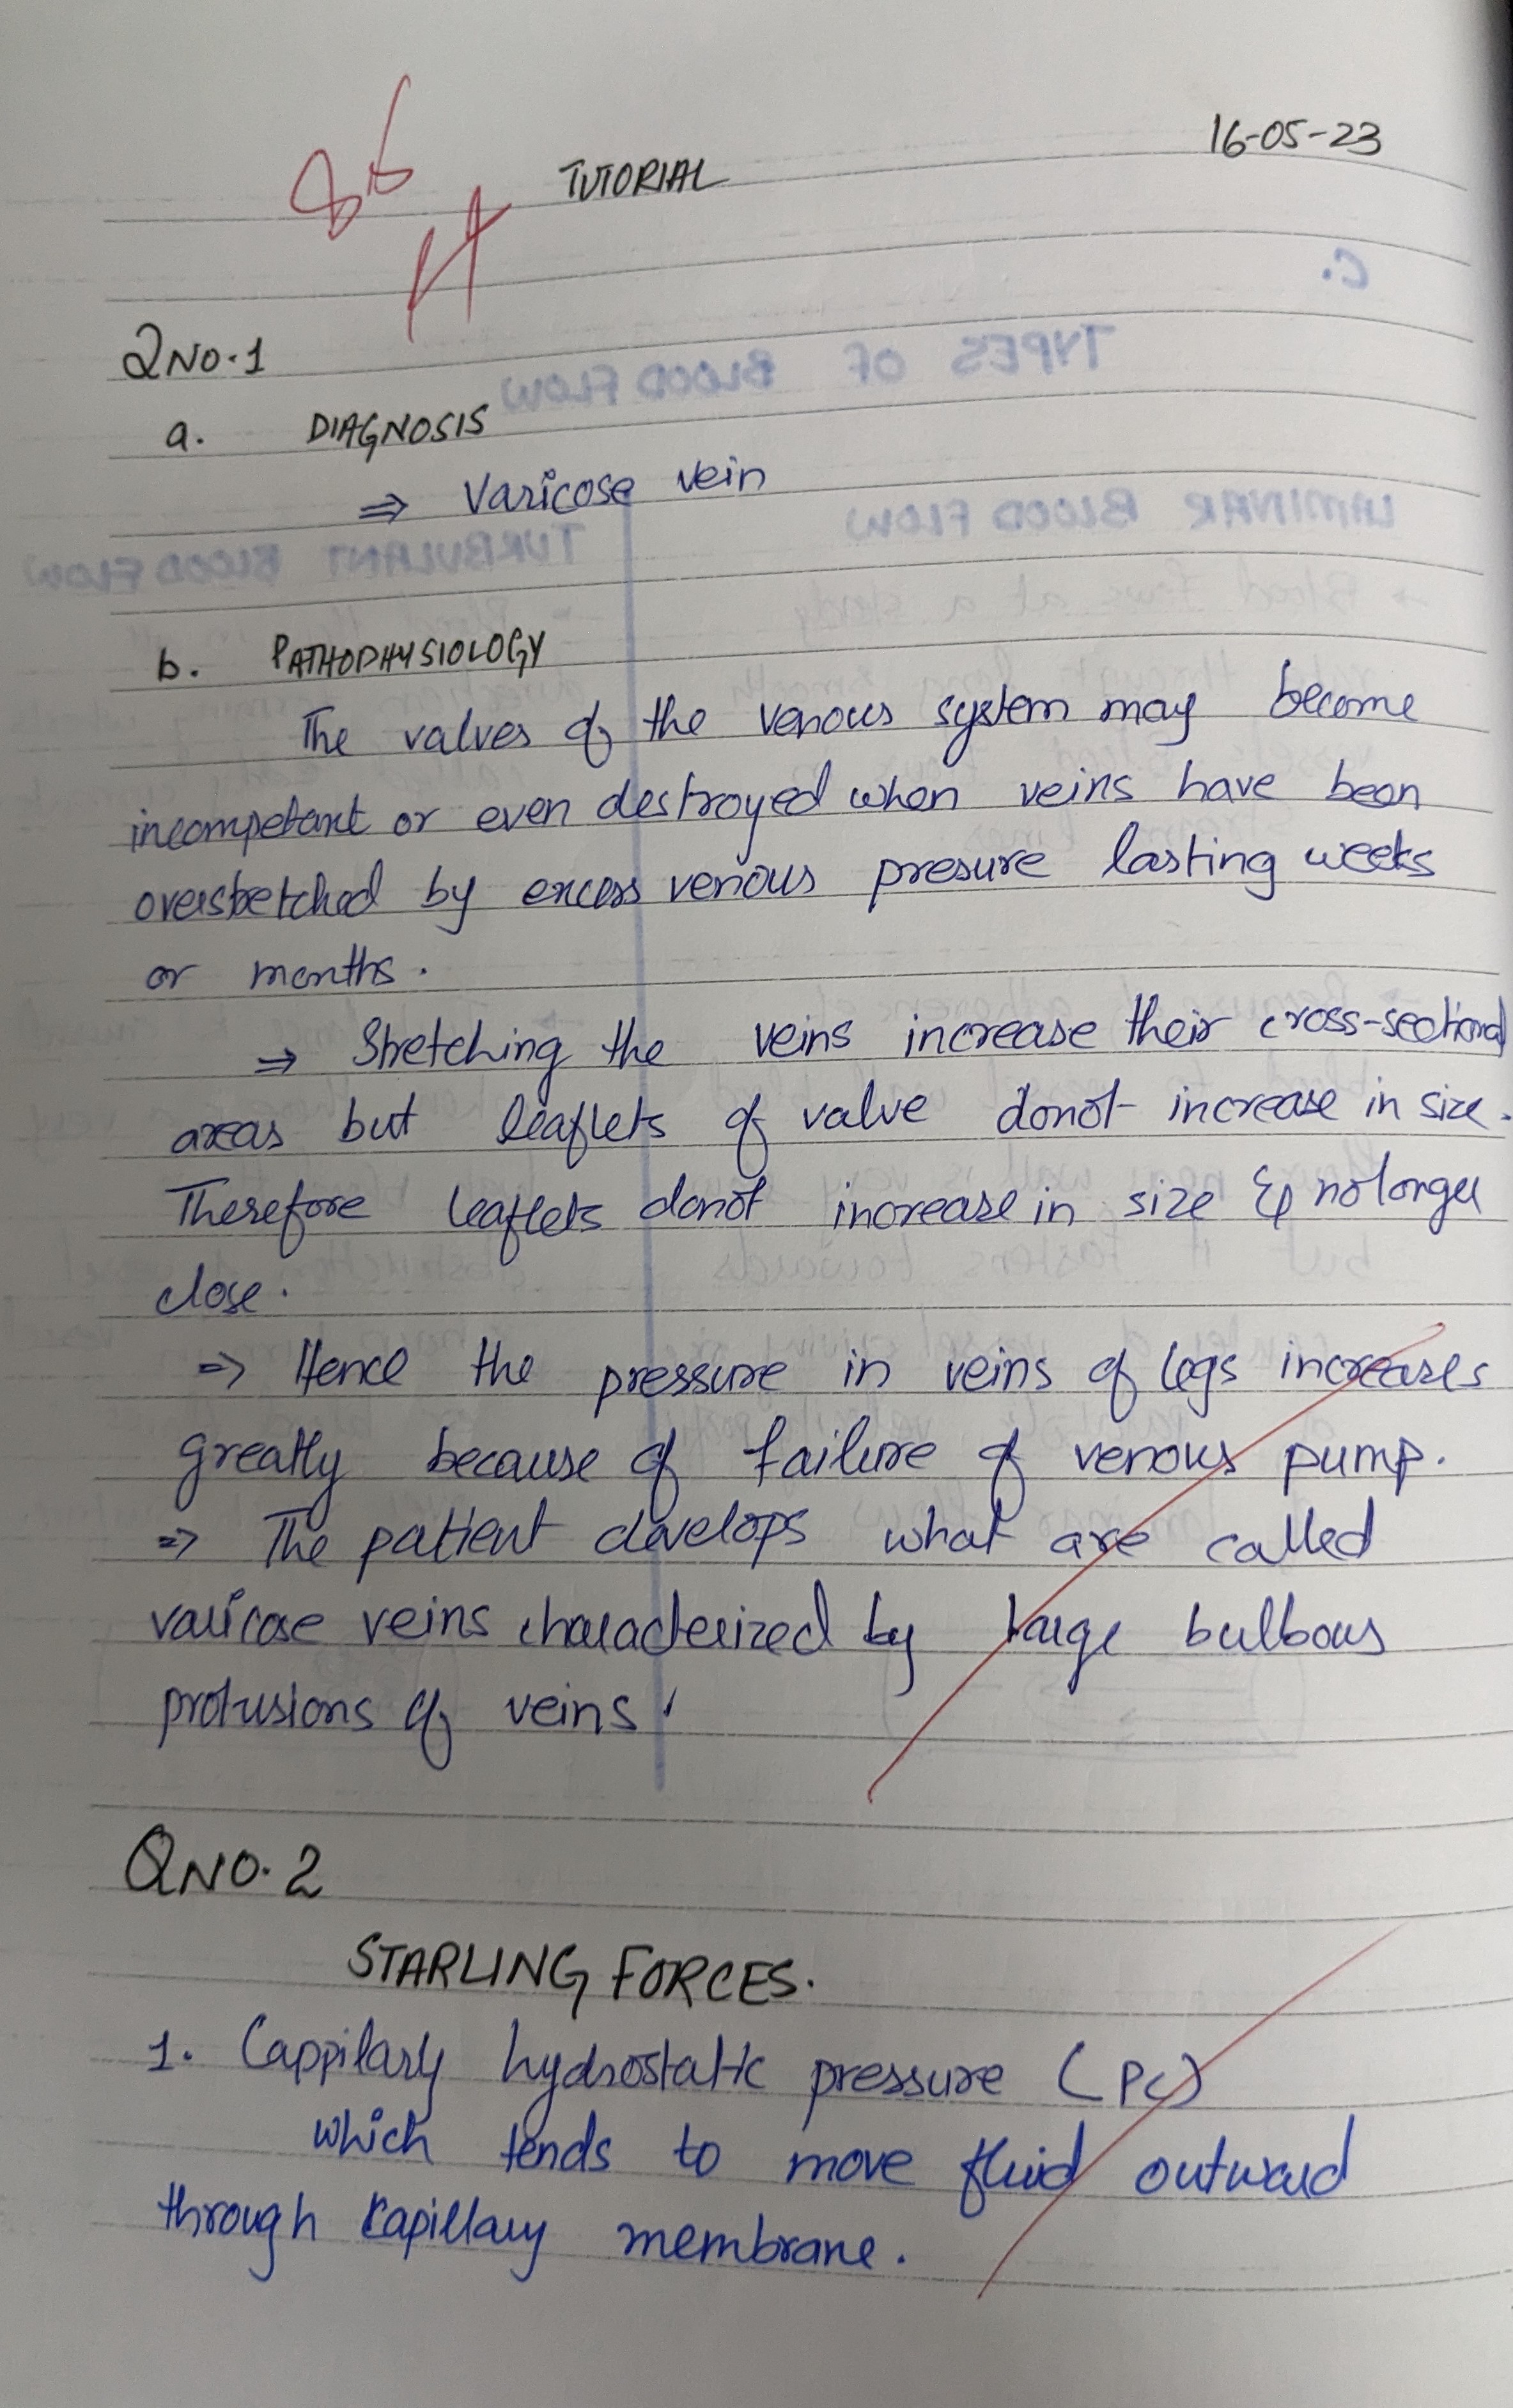 16-05-23
TUTORIAL
QNO.1
a. DIAGNOSIS
⇒ Varicose vein
b. PATHOPHYSIOLOGY
The valves of the venous system may become
incompetant or even destroyed when veins have been
overstretched by excess venous presure lasting weeks
or months.
⇒ Stretching the veins increase their cross-sectional
areas but leaflets of valve donot increase in size.
Therefore leaflets donot increase in size & no longer
close.
⇒ Hence the pressure in veins of legs increases
greatly because of failure of venous pump.
⇒ The patient develops what are called
varicose veins characterized by large bulbous
protusions of veins.
QNO.2
STARLING FORCES.
1. Cappilary hydrostatic pressure (Pc)
which tends to move fluid outward
through capillary membrane.
C.
TYPES OF BLOOD FLOW
LAMINAR BLOOD FLOW
TURBULANT BLOOD FLOW